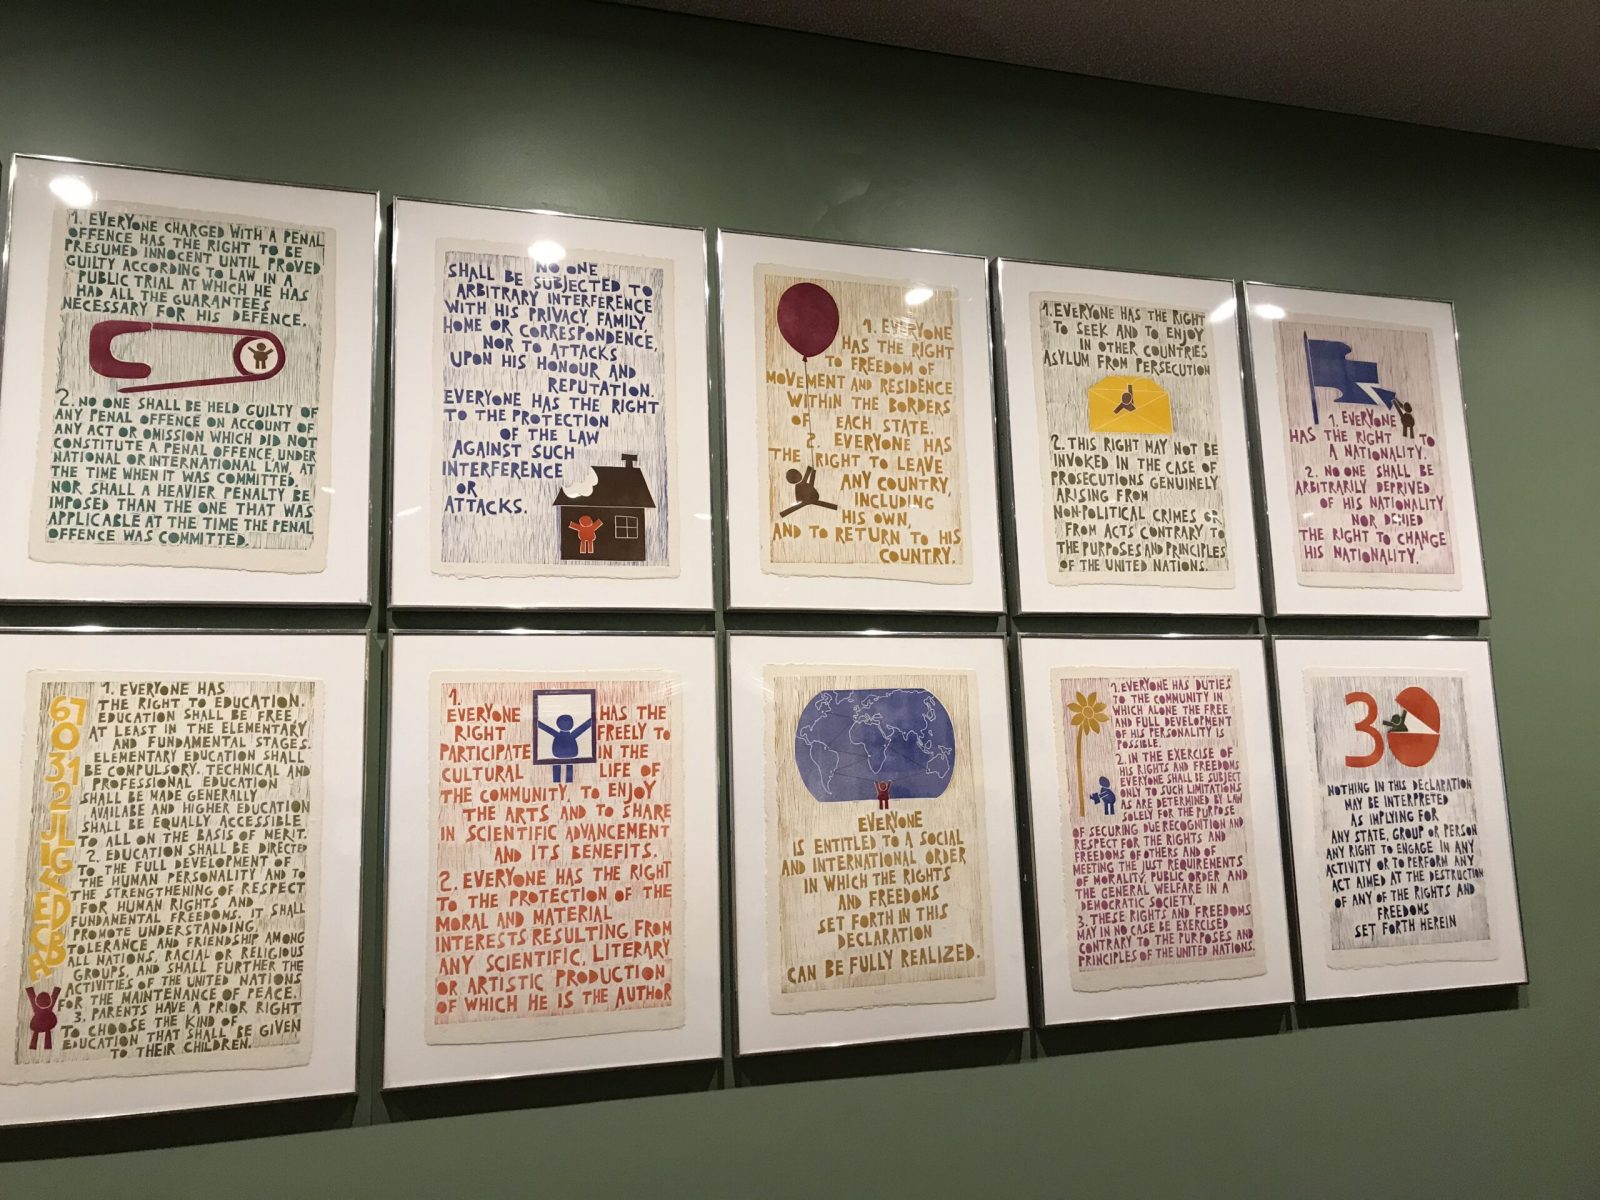 1. EVERYONE CHARGED WITH A PENAL
OFFENCE HAS THE RIGHT TO BE
PRESUMED INNOCENT UNTIL PROVED
GUILTY ACCORDING TO LAW IN A
PUBLIC TRIAL AT WHICH HE HAS
HAD ALL THE GUARANTEES
NECESSARY FOR HIS DEFENCE.
2. NO ONE SHALL BE HELD GUILTY OF
ANY PENAL OFFENCE ON ACCOUNT OF
ANY ACT OR OMISSION WHICH DID NOT
CONSTITUTE A PENAL OFFENCE, UNDER
NATIONAL OR INTERNATIONAL LAW, AT
THE TIME WHEN IT WAS COMMITTED.
NOR SHALL A HEAVIER PENALTY BE
IMPOSED THAN THE ONE THAT WAS
APPLICABLE AT THE TIME THE PENAL
OFFENCE WAS COMMITTED.
NO ONE
SHALL BE SUBJECTED TO
ARBITRARY INTERFERENCE
WITH HIS PRIVACY, FAMILY,
HOME OR CORRESPONDENCE,
NOR TO ATTACKS
UPON HIS HONOUR AND
REPUTATION.
EVERYONE HAS THE RIGHT
TO THE PROTECTION
OF THE LAW
AGAINST SUCH
INTERFERENCE
OR
ATTACKS.
1. EVERYONE
HAS THE RIGHT
TO FREEDOM OF
MOVEMENT AND RESIDENCE
WITHIN THE BORDERS
OF EACH STATE.
2. EVERYONE HAS
THE RIGHT TO LEAVE
ANY COUNTRY,
INCLUDING
HIS OWN,
AND TO RETURN TO HIS
COUNTRY.
1. EVERYONE HAS THE RIGHT
TO SEEK AND TO ENJOY
IN OTHER COUNTRIES
ASYLUM FROM PERSECUTION
2. THIS RIGHT MAY NOT BE
INVOKED IN THE CASE OF
PROSECUTIONS GENUINELY
ARISING FROM
NON-POLITICAL CRIMES OR
FROM ACTS CONTRARY TO
THE PURPOSES AND PRINCIPLES
OF THE UNITED NATIONS.
1. EVERYONE
HAS THE RIGHT TO
A NATIONALITY.
2. NO ONE SHALL BE
ARBITRARILY DEPRIVED
OF HIS NATIONALITY
NOR DENIED
THE RIGHT TO CHANGE
HIS NATIONALITY.
1. EVERYONE HAS
THE RIGHT TO EDUCATION.
EDUCATION SHALL BE FREE,
AT LEAST IN THE ELEMENTARY
AND FUNDAMENTAL STAGES.
ELEMENTARY EDUCATION SHALL
BE COMPULSORY. TECHNICAL AND
PROFESSIONAL EDUCATION
SHALL BE MADE GENERALLY
AVAILABE AND HIGHER EDUCATION
SHALL BE EQUALLY ACCESSIBLE
TO ALL ON THE BASIS OF MERIT.
2. EDUCATION SHALL BE DIRECTED
TO THE FULL DEVELOPMENT OF
THE HUMAN PERSONALITY AND TO
THE STRENGTHENING OF RESPECT
FOR HUMAN RIGHTS AND
FUNDAMENTAL FREEDOMS. IT SHALL
PROMOTE UNDERSTANDING,
TOLERANCE AND FRIENDSHIP AMONG
ALL NATIONS, RACIAL OR RELIGIOUS
GROUPS, AND SHALL FURTHER THE
ACTIVITIES OF THE UNITED NATIONS
FOR THE MAINTENANCE OF PEACE.
3. PARENTS HAVE A PRIOR RIGHT
TO CHOOSE THE KIND OF
EDUCATION THAT SHALL BE GIVEN
TO THEIR CHILDREN.
1.
EVERYONE HAS THE
RIGHT FREELY TO
PARTICIPATE IN THE
CULTURAL LIFE OF
THE COMMUNITY, TO ENJOY
THE ARTS AND TO SHARE
IN SCIENTIFIC ADVANCEMENT
AND ITS BENEFITS.
2. EVERYONE HAS THE RIGHT
TO THE PROTECTION OF THE
MORAL AND MATERIAL
INTERESTS RESULTING FROM
ANY SCIENTIFIC, LITERARY
OR ARTISTIC PRODUCTION
OF WHICH HE IS THE AUTHOR
EVERYONE
IS ENTITLED TO A SOCIAL
AND INTERNATIONAL ORDER
IN WHICH THE RIGHTS
AND FREEDOMS
SET FORTH IN THIS
DECLARATION
CAN BE FULLY REALIZED.
1. EVERYONE HAS DUTIES
TO THE COMMUNITY IN
WHICH ALONE THE FREE
AND FULL DEVELOPMENT
OF HIS PERSONALITY IS
POSSIBLE.
2. IN THE EXERCISE OF
HIS RIGHTS AND FREEDOMS
EVERYONE SHALL BE SUBJECT
ONLY TO SUCH LIMITATIONS
AS ARE DETERMINED BY LAW
SOLELY FOR THE PURPOSE
OF SECURING DUE RECOGNITION AND
RESPECT FOR THE RIGHTS AND
FREEDOMS OF OTHERS AND OF
MEETING THE JUST REQUIREMENTS
OF MORALITY, PUBLIC ORDER AND
THE GENERAL WELFARE IN A
DEMOCRATIC SOCIETY.
3. THESE RIGHTS AND FREEDOMS
MAY IN NO CASE BE EXERCISED
CONTRARY TO THE PURPOSES AND
PRINCIPLES OF THE UNITED NATIONS.
30
NOTHING IN THIS DECLARATION
MAY BE INTERPRETED
AS IMPLYING FOR
ANY STATE, GROUP OR PERSON
ANY RIGHT TO ENGAGE IN ANY
ACTIVITY OR TO PERFORM ANY
ACT AIMED AT THE DESTRUCTION
OF ANY OF THE RIGHTS AND
FREEDOMS
SET FORTH HEREIN